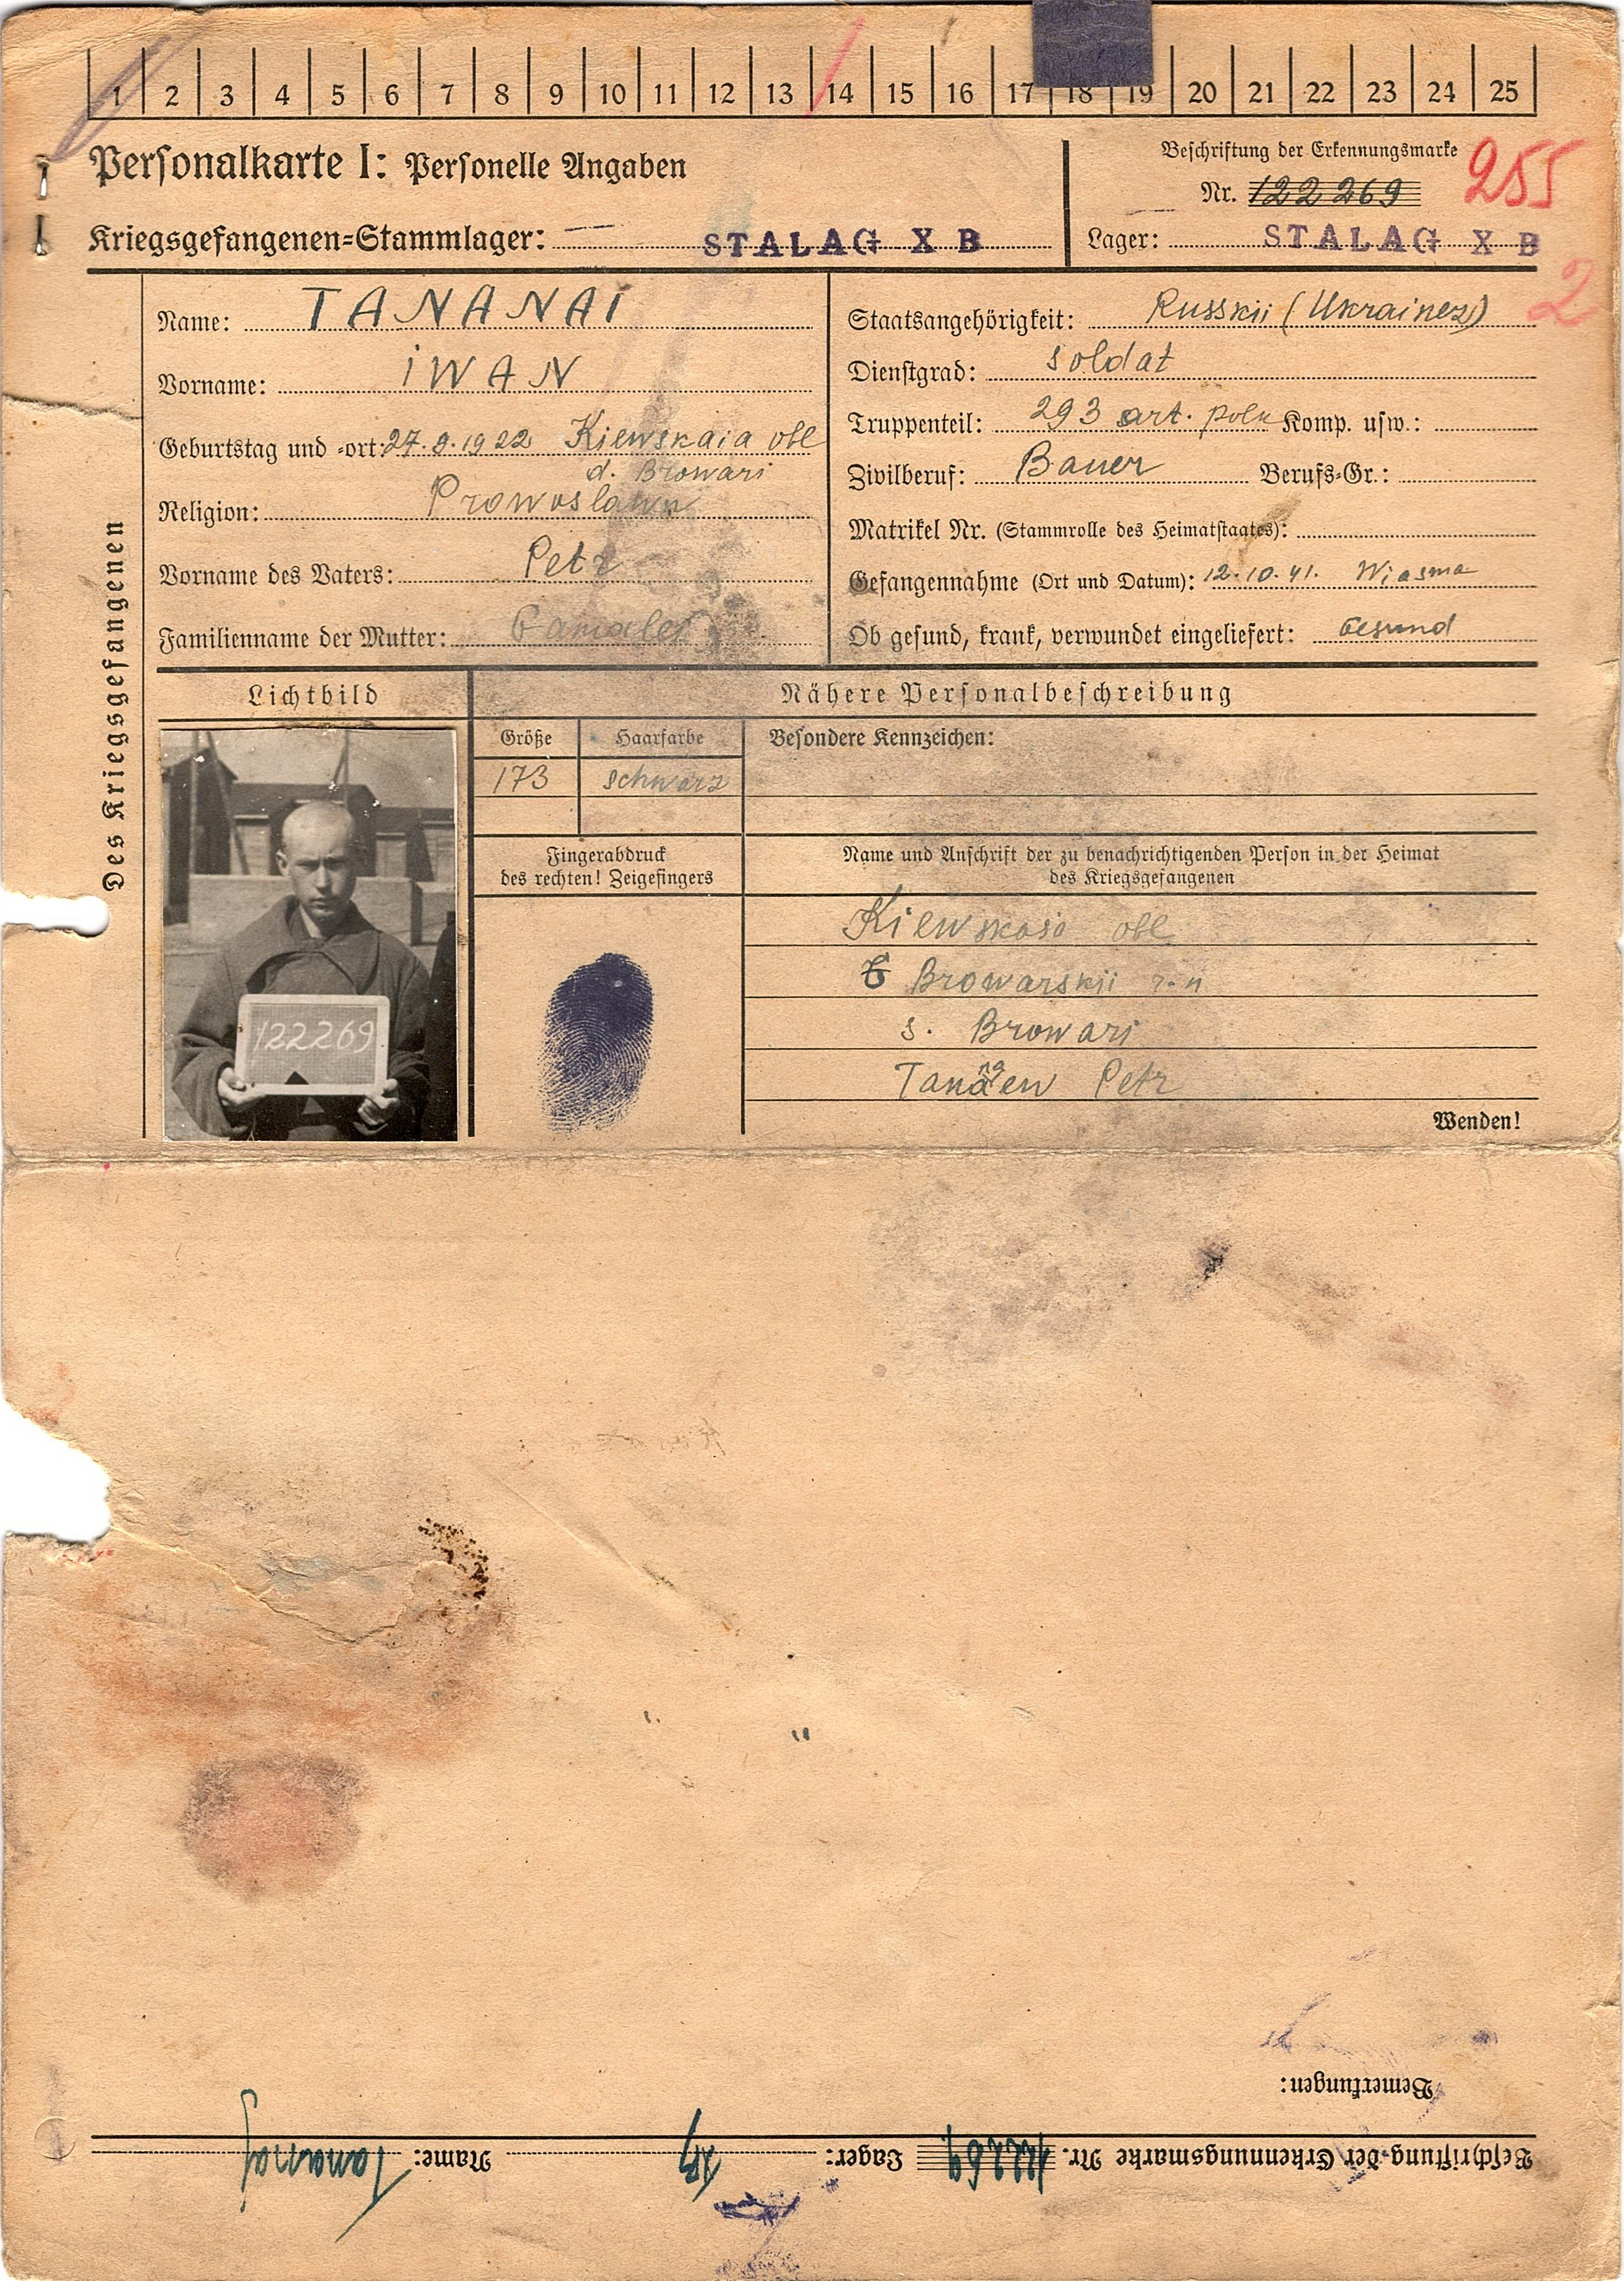 1 2 3 4 5 6 7 8 9 10 11 12 13 14 15 16 17 18 19 20 21 22 23 24 25
Personalkarte I: Personelle Angaben
Kriegsgefangenen-Stammlager: STALAG X B
Beschriftung der Erkennungsmarke
Nr. 122269
255
Lager: STALAG X B
2
Des Kriegsgefangenen
Name: TANANAI
Vorname: IWAN
Geburtstag und -ort: 27.9.1922 Kiewskaia obl
d. Browari
Religion: Prowoslawn
Vorname des Vaters: Petr
Familienname der Mutter:
Staatsangehörigkeit: Russkii (Ukrainez)
Dienstgrad: Soldat
Truppenteil: 293 art. polk Komp. usw.:
Zivilberuf: Bauer Berufs-Gr.:
Matrikel Nr. (Stammrolle des Heimatstaates):
Gefangennahme (Ort und Datum): 12.10.41. Wiasma
Ob gesund, krank, verwundet eingeliefert: Gesund
Lichtbild
122269
Nähere Personalbeschreibung
Größe Haarfarbe
173 schwarz
Besondere Kennzeichen:
Fingerabdruck
des rechten! Zeigefingers
Name und Anschrift der zu benachrichtigenden Person in der Heimat
des Kriegsgefangenen
Kiewskaja obl
Browarskii r-n
s. Browari
Petr
Wenden!
Bemerkungen:
Beschriftung der Erkennungsmarke Nr. 122269 Lager: XB Name: Tananaj